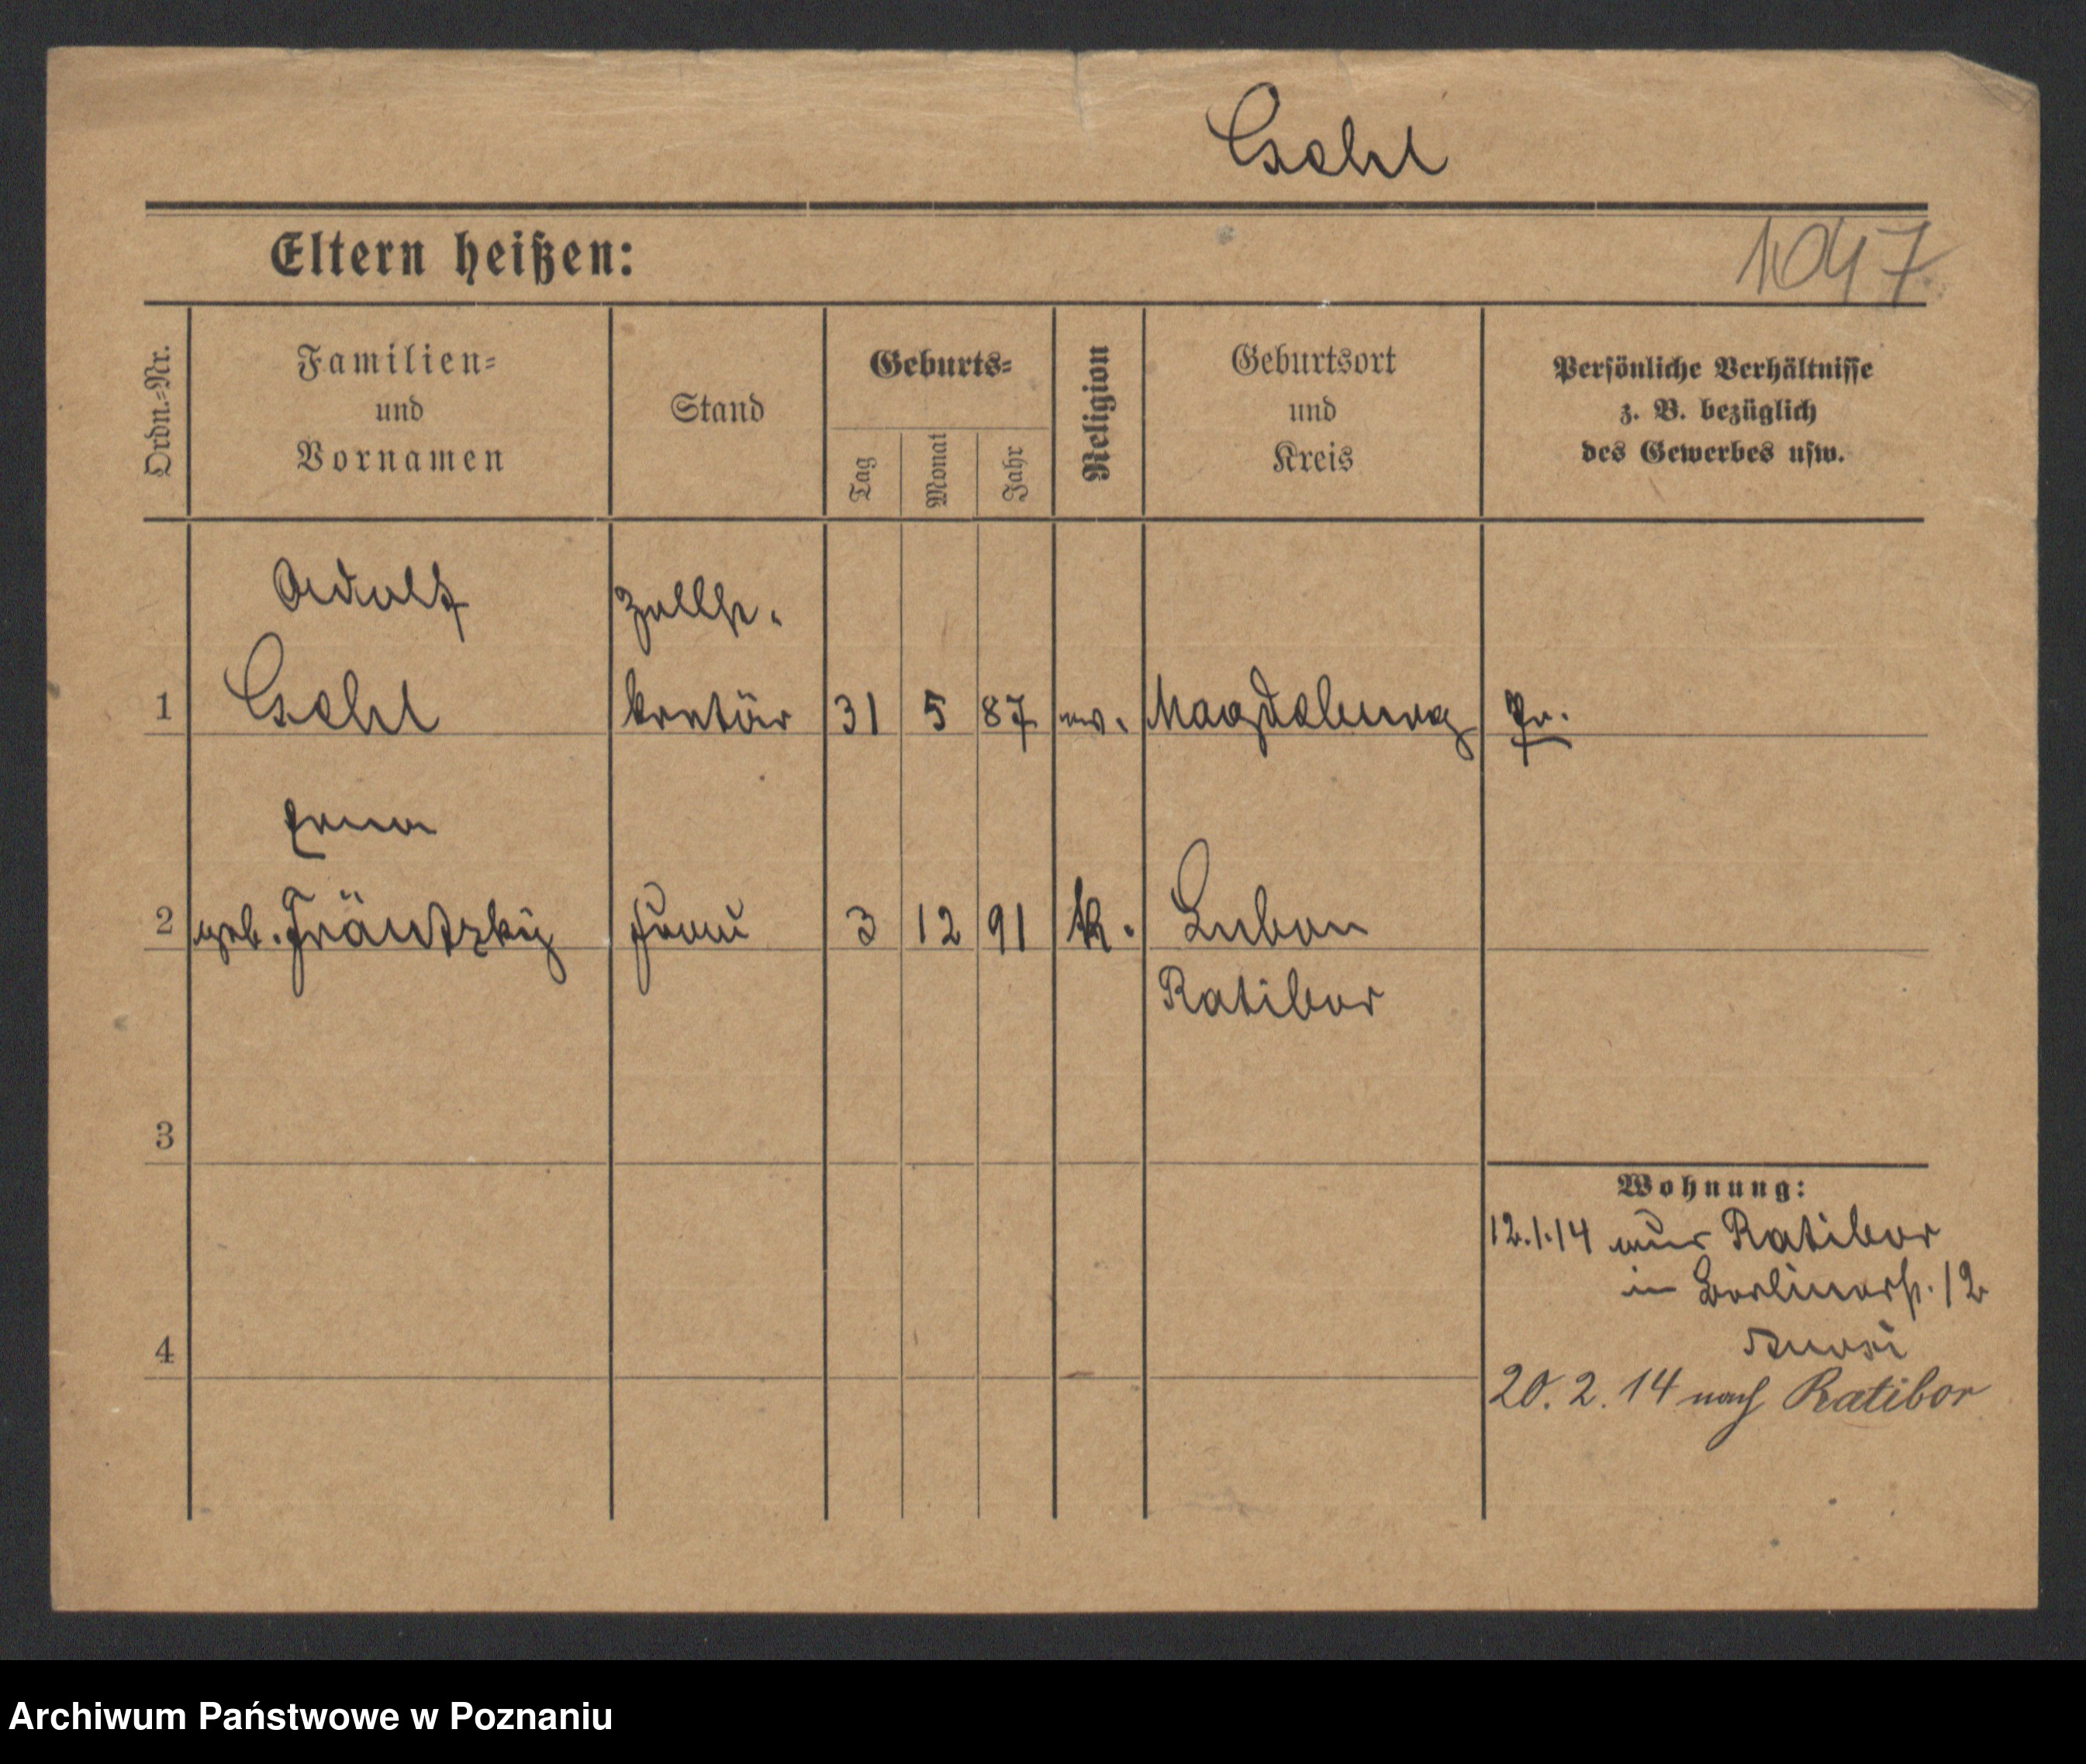 Eschl
Eltern heißen:
1047
Ordn.-Nr.
Familien-
und
Vornamen
Stand
Geburts-
Tag
Monat
Jahr
Religion
Geburtsort
und
Kreis
Persönliche Verhältnisse
z. B. bezüglich
des Gewerbes usw.
Adolf
Zollse-
1 kretär 31 5 87 ev. Magdeburg Pr.
Erna
2 geb. Fräntzky Frau 3 12 91 k. Lubom
Ratibor
3
4
Wohnung:
12.1.14 aus Ratibor
in Berlinerst. 12
20.2.14 nach Ratibor
Archiwum Państwowe w Poznaniu